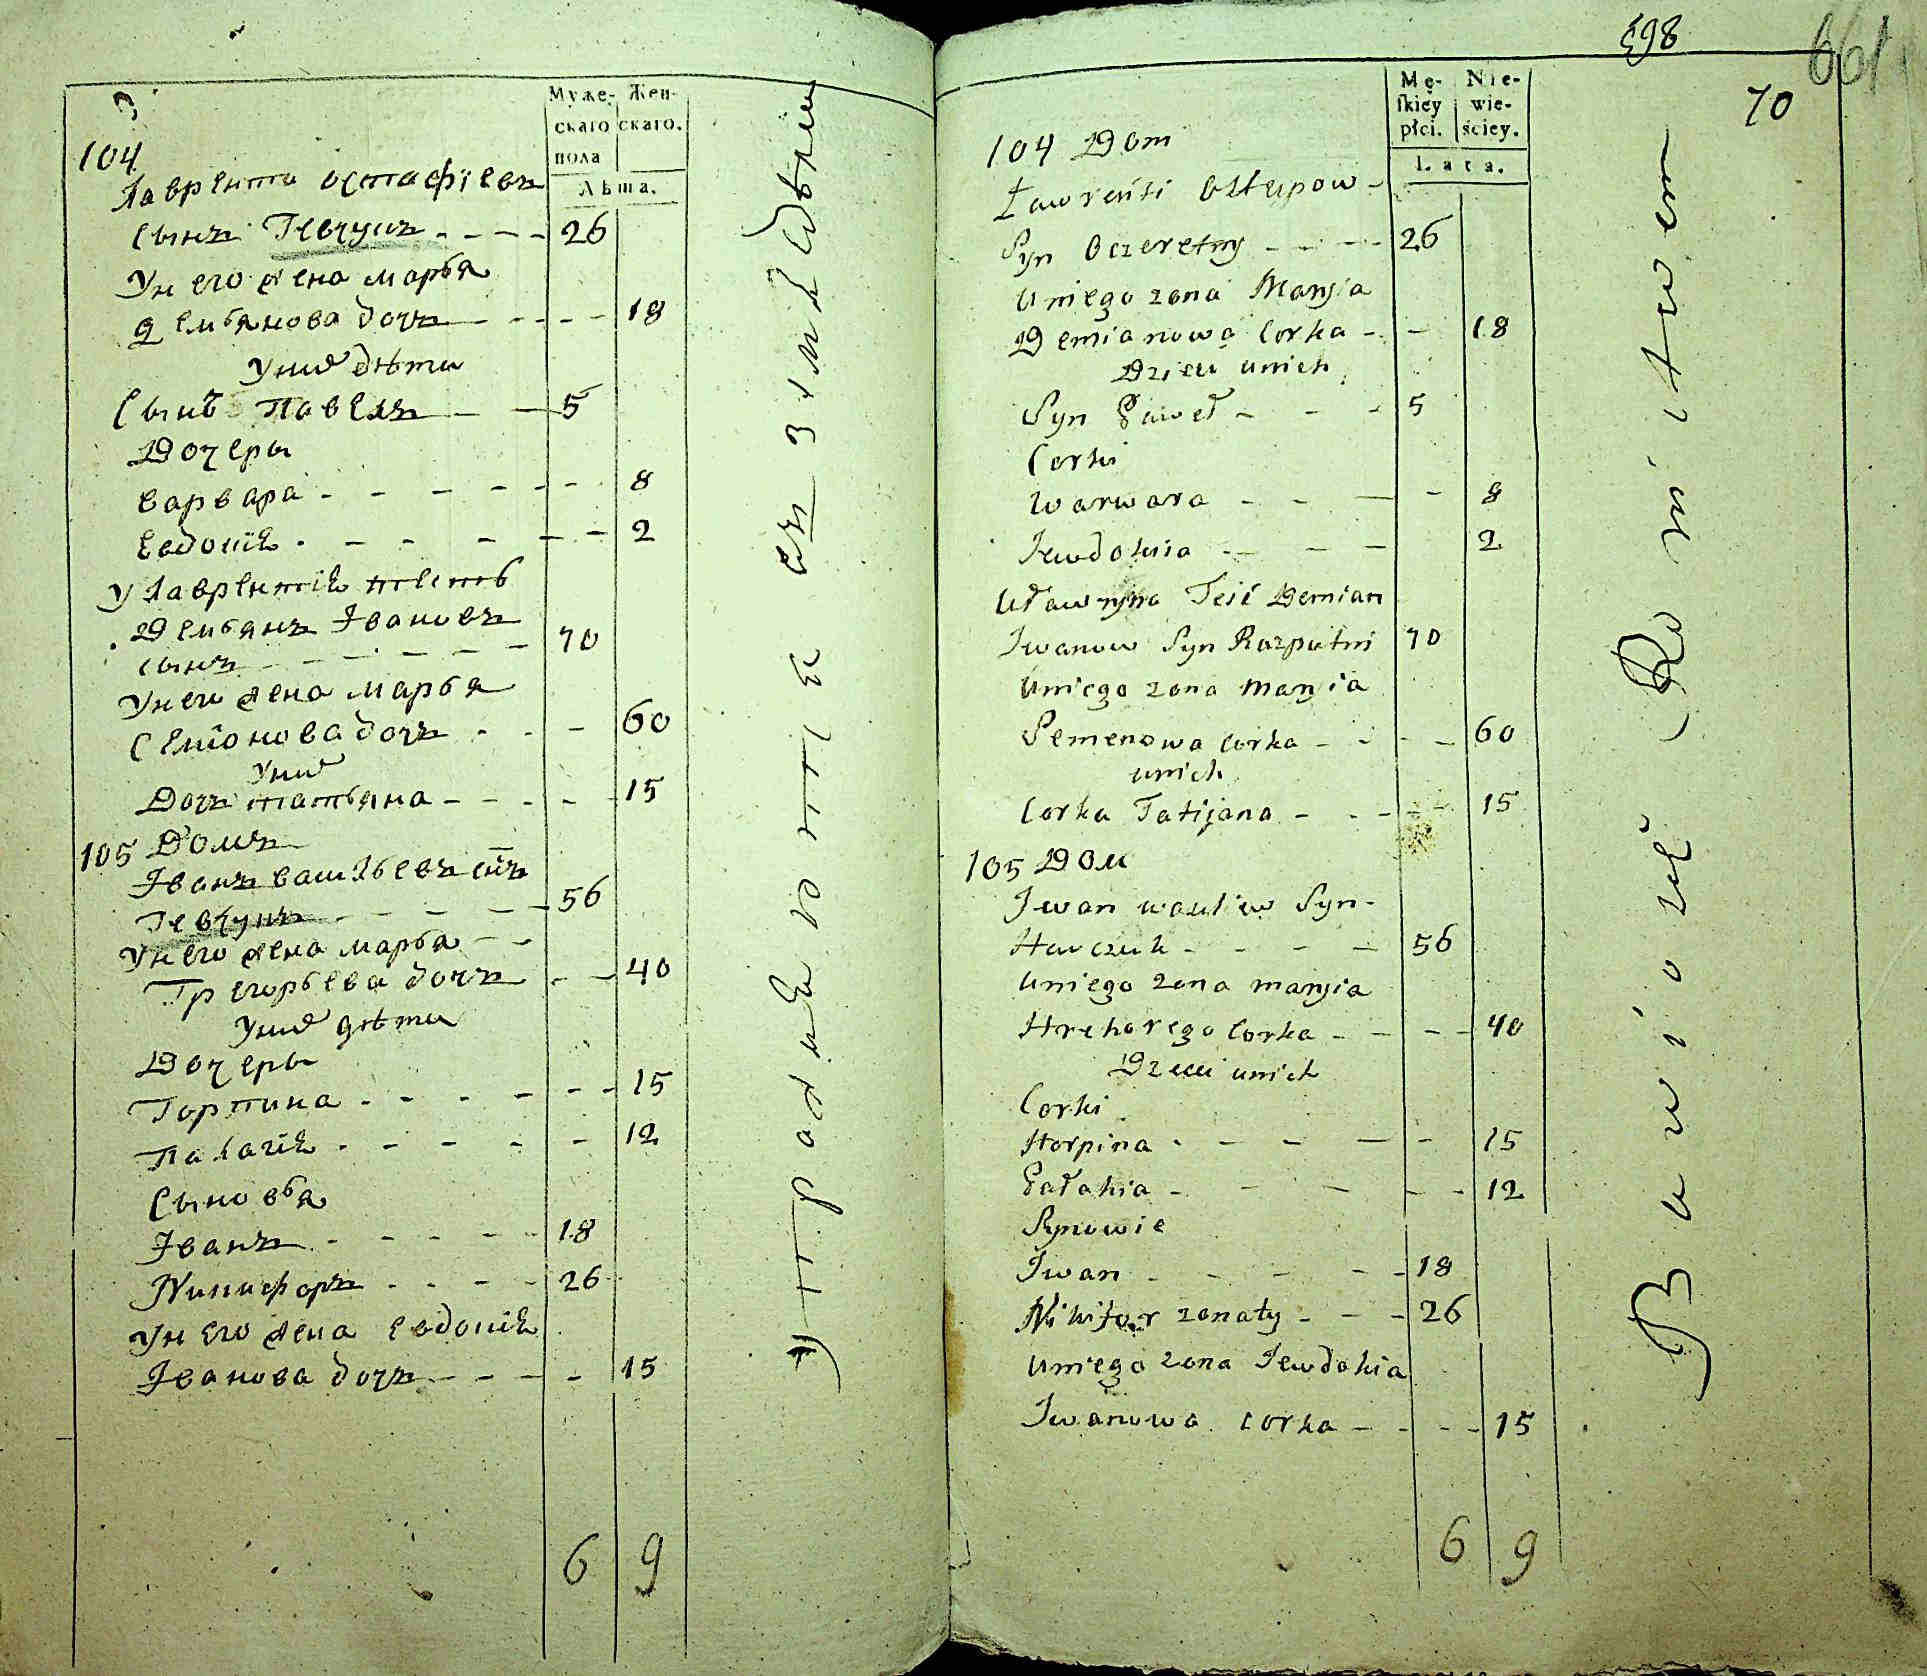 3
104
Муже-
скаго
пола
Жен-
скаго.
Лѣта.
Лаврентiи Остафiевъ
сынъ Гевчукъ - - - - 26
Унего жена марья
демьянова дочь - - - - 18
Униx дѣти
Сынъ Павелъ - - 5
Дочеры
варвара - - - - - - 8
Евдокiя - - - - - - 2
У Лаврентiя тесть
Демьянъ Iвановъ
сынъ - - - - - - 70
Унего жена марья
Семiонова дочь - - - 60
Униx
Дочь татьяна - - - - - 15
105 Домъ
Iванъ васильевъ снъ
Гевчукъ - - - - 56
Унего жена марья - -
Грегорьева дочь - - 40
Униx дѣти
Дочеры
Горпина - - - - - - 15
Палагiя - - - - - 12
Сыновья
Iванъ - - - - - 18
Никифоръ - - - - 26
Унего жена Евдокiя
Iванова дочь - - - - - 15
6 9
упражнюются въ земледѣлiи
863
661
70
Mę-
ſkiey
płci.
Nie-
wie-
ściey.
Lata.
104 Dom
Ławrenti Ostapow -
Syn Oczeretny - - - - 26
Uniego zona Maryia
Demianowa Corka - - 18
Dzieci unich
Syn Paweł - - - 5
Corki
Warwara - - - - 8
Jewdokia - - - 2
Uławryna Teść Demian
Iwanow Syn Rozputni 70
Uniego zona maryia
Semenowa Corka - - - - 60
unich
Corka Tatijana - - - - - 15
105 Dom
Iwan wasilew Syn -
Hawczuk - - - - 56
Uniego zona maryia
Hrehorego Corka - - - - 40
Dzieci unich
Corki
Horpina - - - - - 15
Pałahia - - - - - 12
Synowie
Iwan - - - - - 18
Nikifor zonaty - - - 26
Uniego zona Jewdokia
Iwanowa corka - - - - 15
6 9
Bawioҫię Rolnictwem